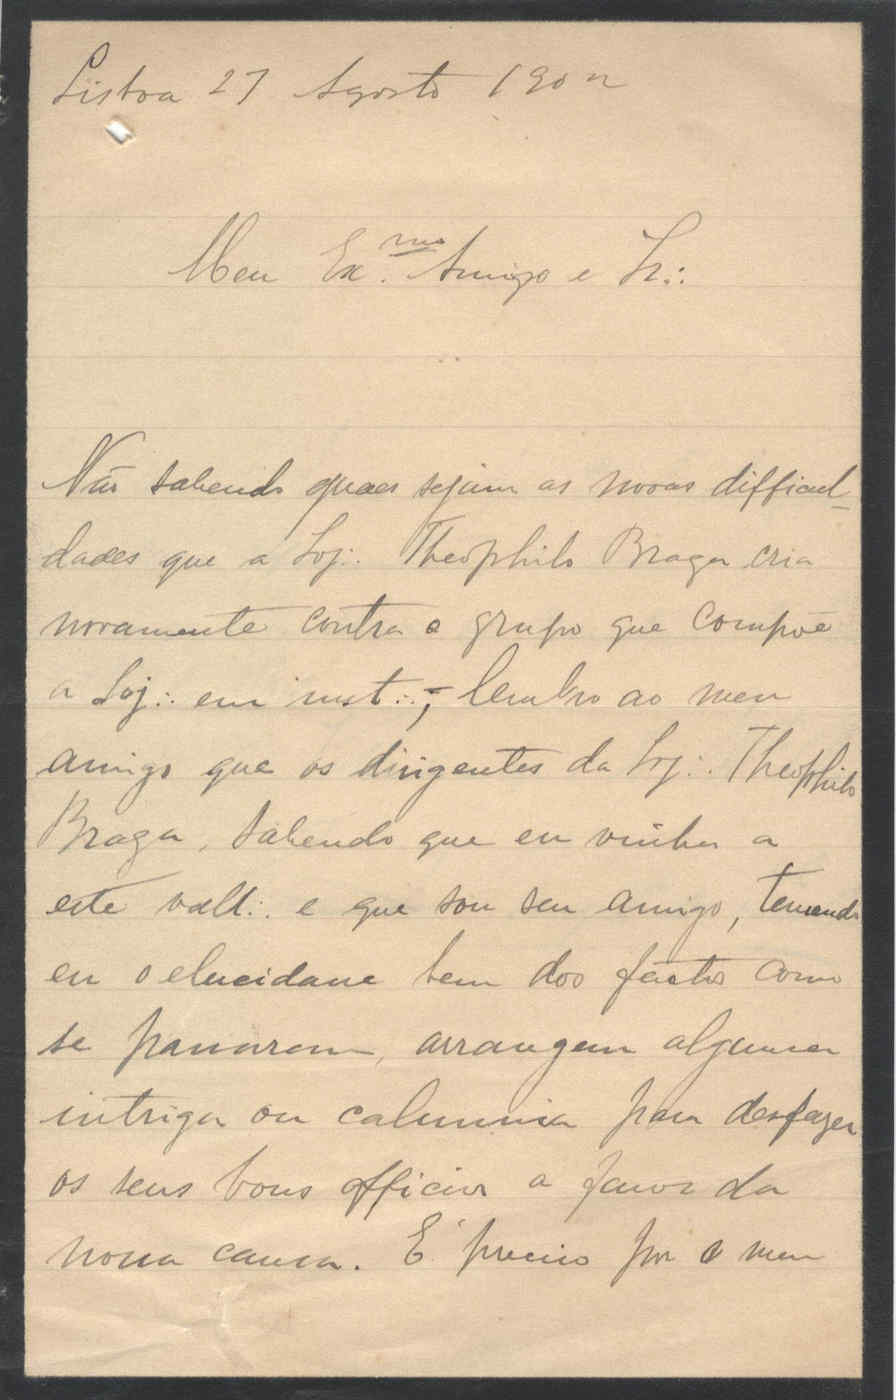 Lisboa 27 Agosto 1902
Meu Ex.mo Amigo e Ir∴
Não sabendo quaes sejam as novas difficul-
dades que a Loj∴ Theophilo Braga cria
novamente contra o grupo que compõe
a Loj∴ em inst∴; lembro ao meu
amigo que os dirigentes da Loj∴ Theophilo
Braga, sabendo que eu vinha a
este vall∴ e que sou seu amigo, temendo
eu o elucidasse bem dos factos como
se passaram, arrangem alguma
intriga ou calumnia para desfazer
os seus bons officios a favor da
nossa causa. É preciso pôr o meu